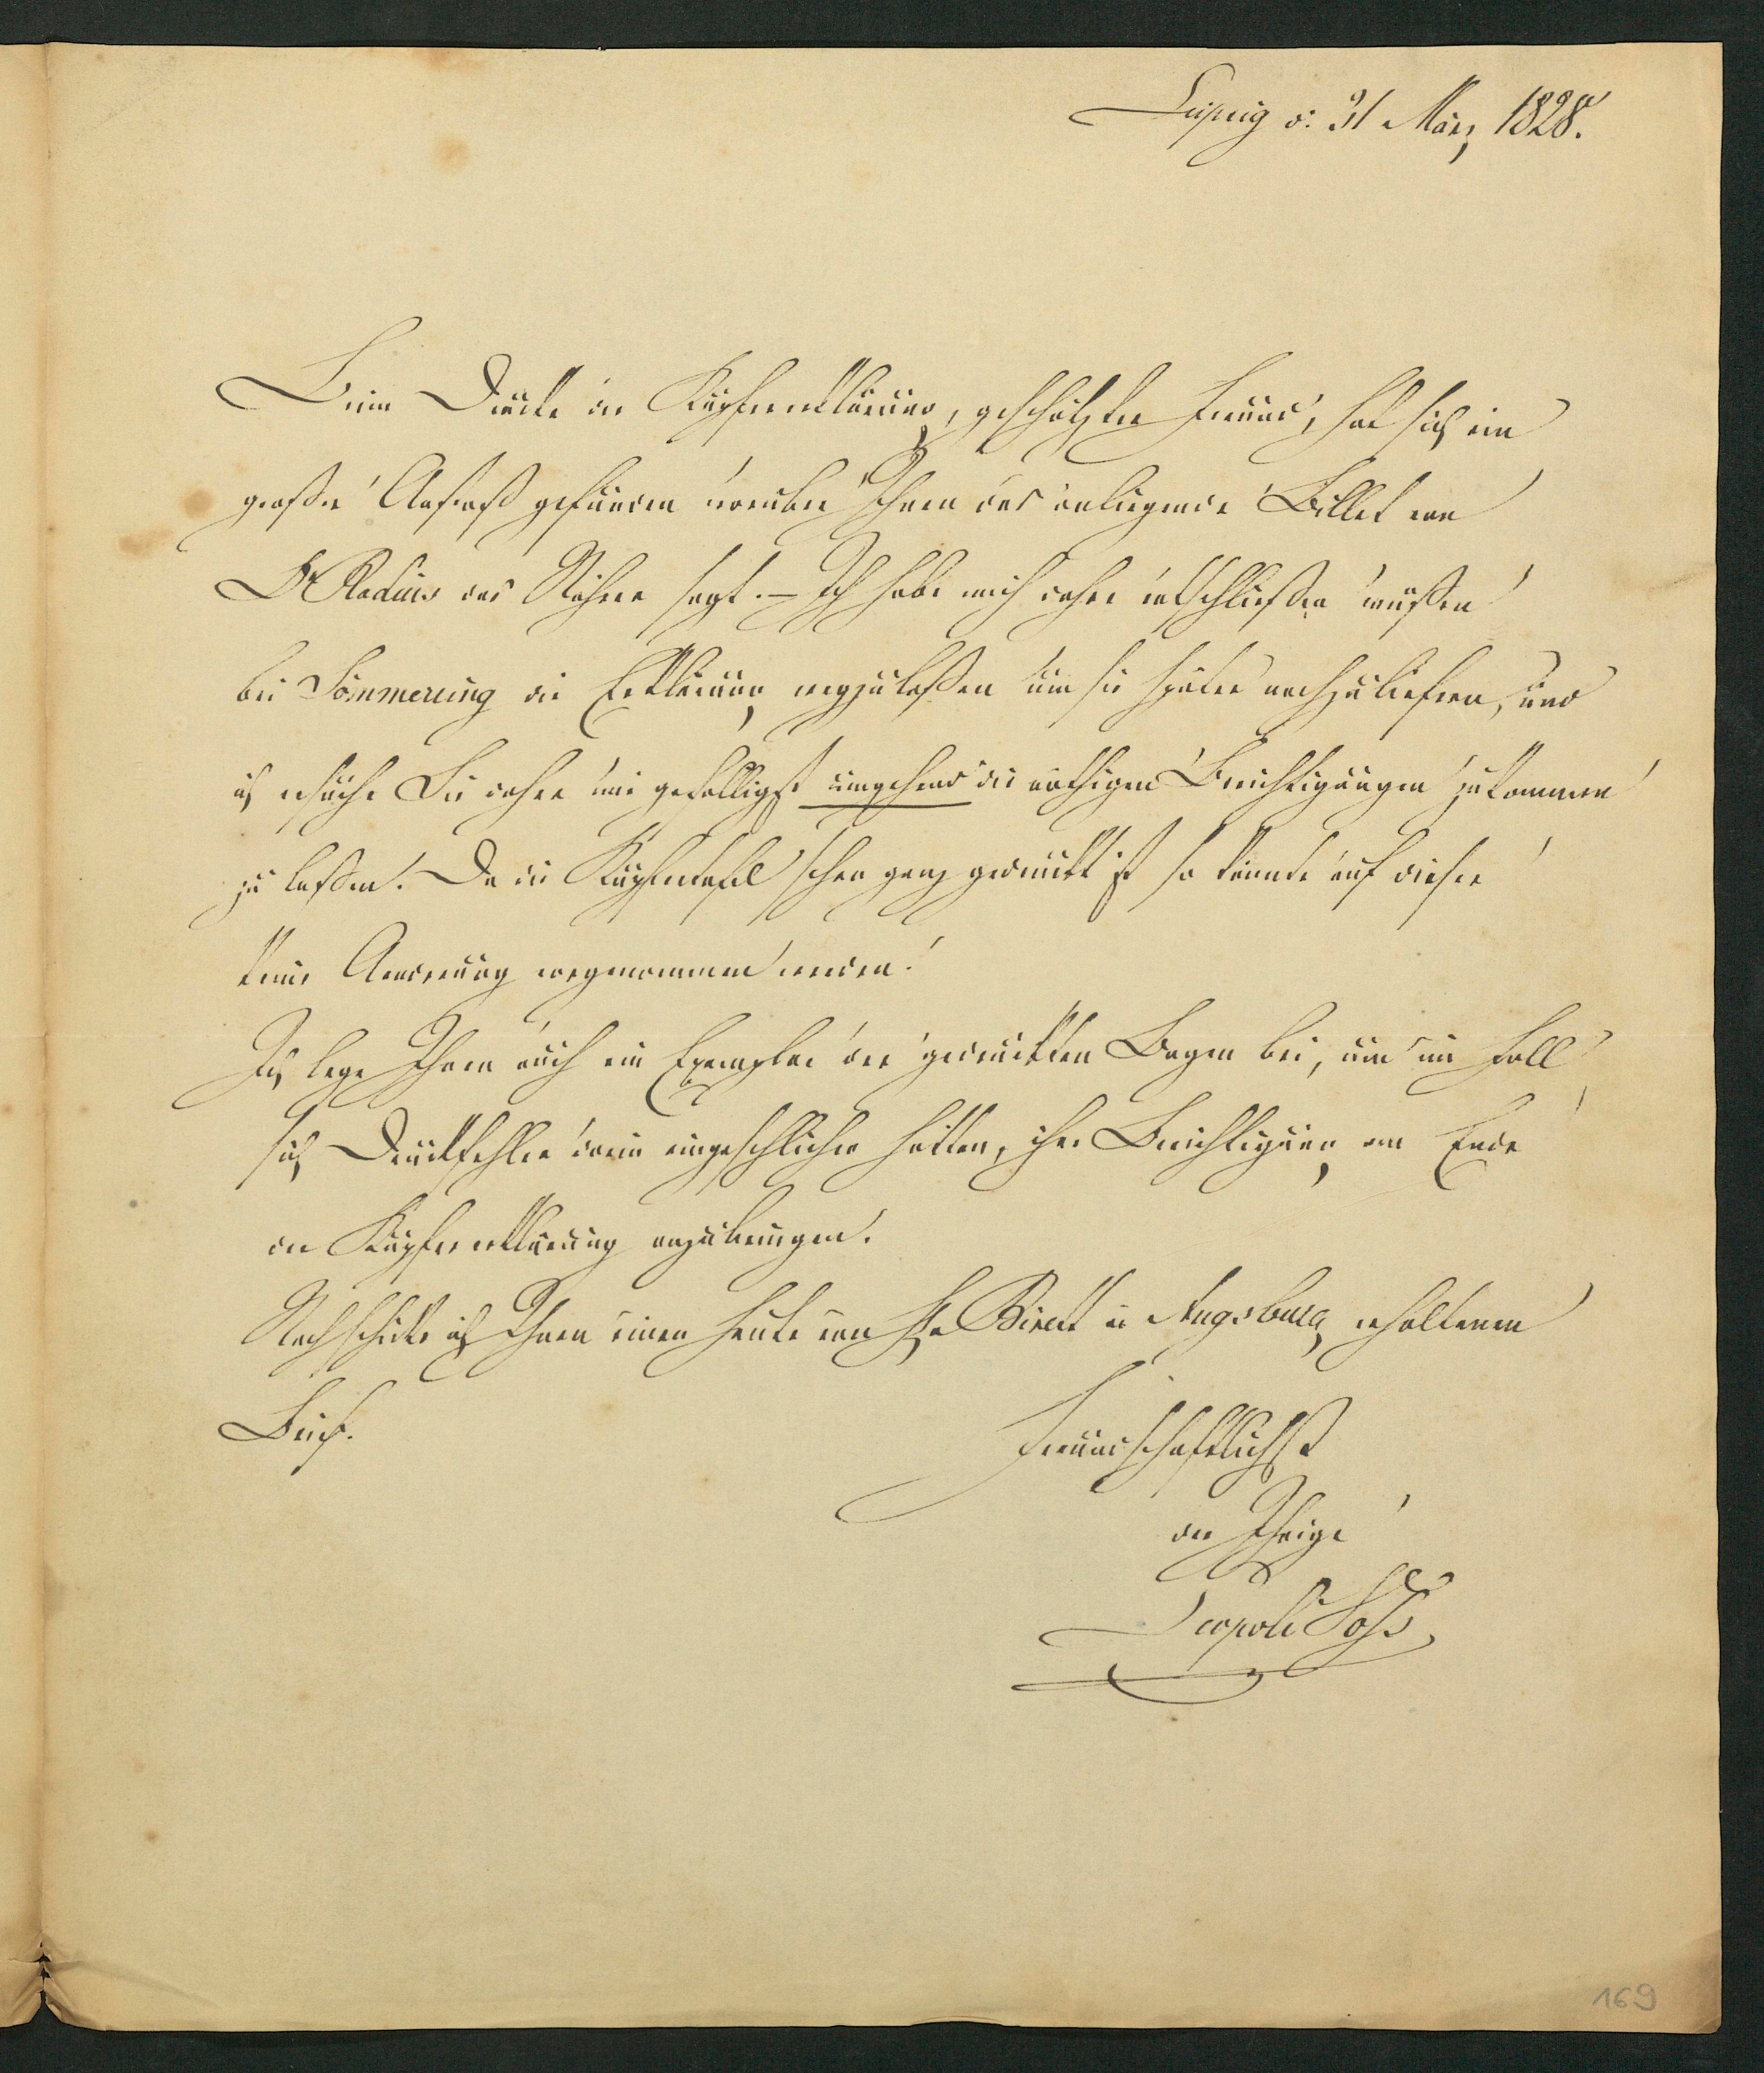 Leipzig d. 31 März 1828.
Beim Drucke der Kupfererklärung, geschätzter Freund, hat sich ein
großer Anstoß gefunden worüber Ihnen das anliegende Billet von
Dr Radius das Nähere sagt. – Ich habe mich daher entschließen müssen
bei Sömmering die Erklärung wegzulaßen um sie später nachzuliefern, und
ich ersuche Sie daher mir gefälligst umgehend die nöthigen Berichtigungen zukommen
zu laßen. Da die Kupfertafel schon ganz gedruckt ist so könnte auf dieser
keine Aenderung vorgenommen werden.
Ich lege Ihnen auch ein Exemplar der gedruckten Bogen bei, um im Fall
sich Druckfehler darin eingeschlichen hätten, ihre Berichtigung am Ende
der Kupfererklärung anzubringen.
Noch schicke ich Ihnen einen heute von Hn in Augsburg erhaltenen
Brief.
Freundschaftlichst
der Ihrige
Leopold Voß
169